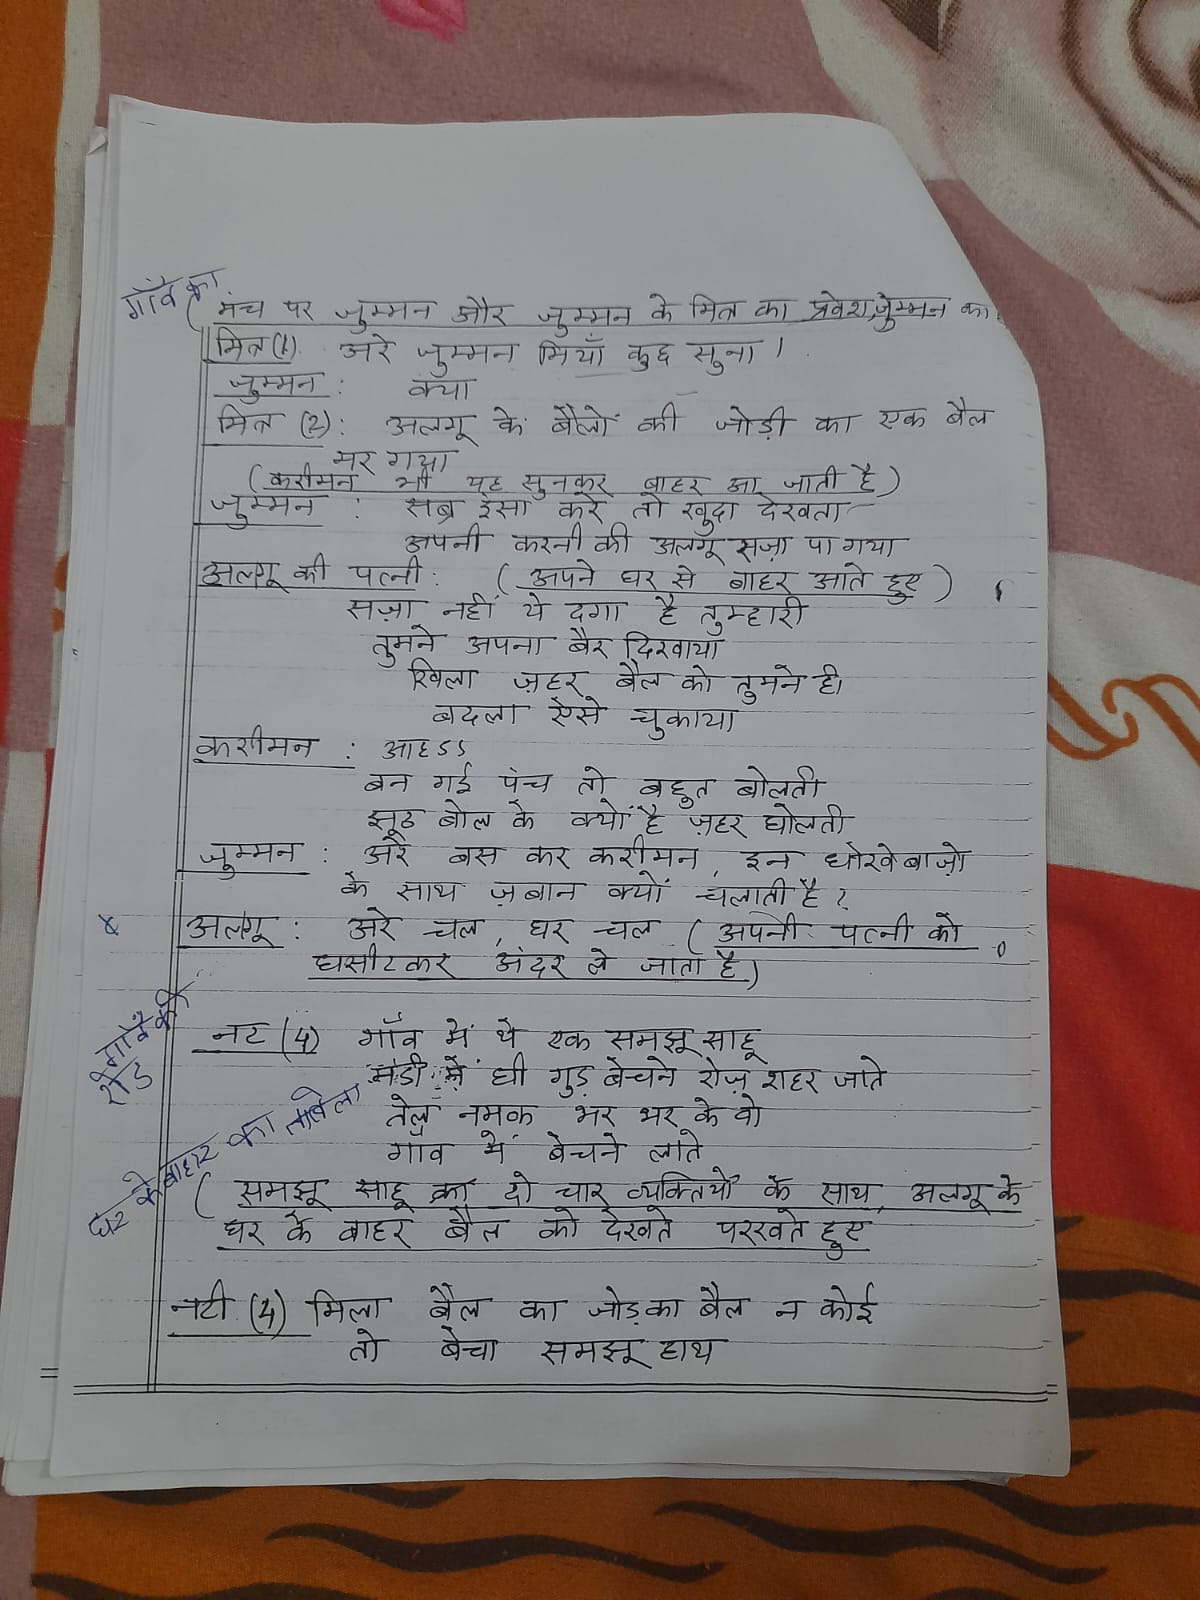 गाँव का
(मंच पर जुम्मन और जुम्मन के मित्र का प्रवेश, जुम्मन का
मित्र(1). अरे जुम्मन मियाँ कुछ सुना।
जुम्मन : क्या
मित्र (2): अलगू के बैलों की जोड़ी का एक बैल
मर गया
(करीमन भी यह सुनकर बाहर आ जाती है)
जुम्मन : सब्र इंसा करे तो खुदा देखता
अपनी करनी की अलगू सज़ा पा गया
अलगू की पत्नी: (अपने घर से बाहर आते हुए)
सज़ा नहीं ये दगा है तुम्हारी
तुमने अपना बैर दिखाया
खिला ज़हर बैल को तुमने ही
बदला ऐसे चुकाया
करीमन : आहऽऽ
बन गई पंच तो बहुत बोलती
झूठ बोल के क्यों है ज़हर घोलती
जुम्मन : अरे बस कर करीमन, इन धोखेबाज़ो
के साथ ज़बान क्यों चलाती है?
अलगू : अरे चल, घर चल (अपनी पत्नी को
घसीटकर अंदर ले जाता है)
गाँव की
रोड
नट (4) गाँव में थे एक समझू साहू
मंडी में घी गुड़ बेचने रोज़ शहर जाते
तेल नमक भर भर के वो
गाँव में बेचने लाते
घर के बाहर का तबेला
(समझू साहू का दो चार व्यक्तियों के साथ, अलगू के
घर के बाहर बैल को देखते परखते हुए
नटी (4) मिला बैल का जोड़ का बैल न कोई
तो बेचा समझू हाथ